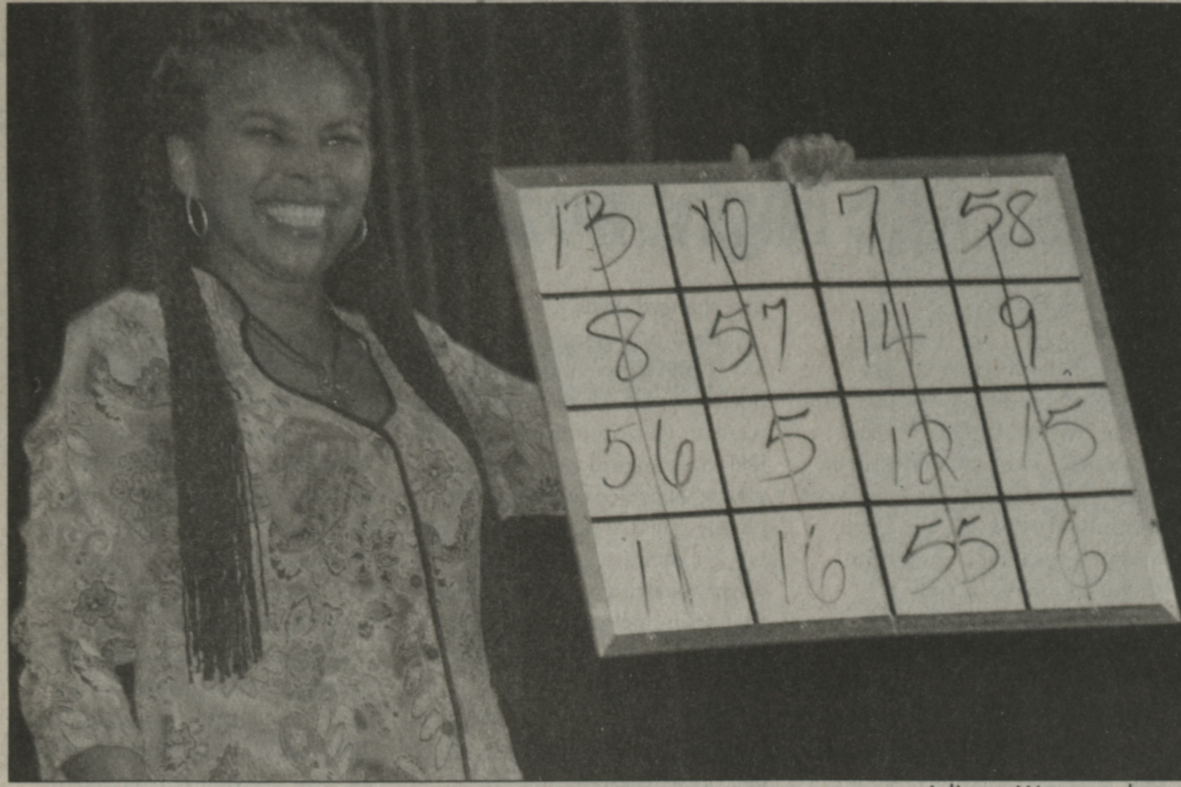 13 10 7 58
8 57 14 9
56 5 12 15
11 16 55 6